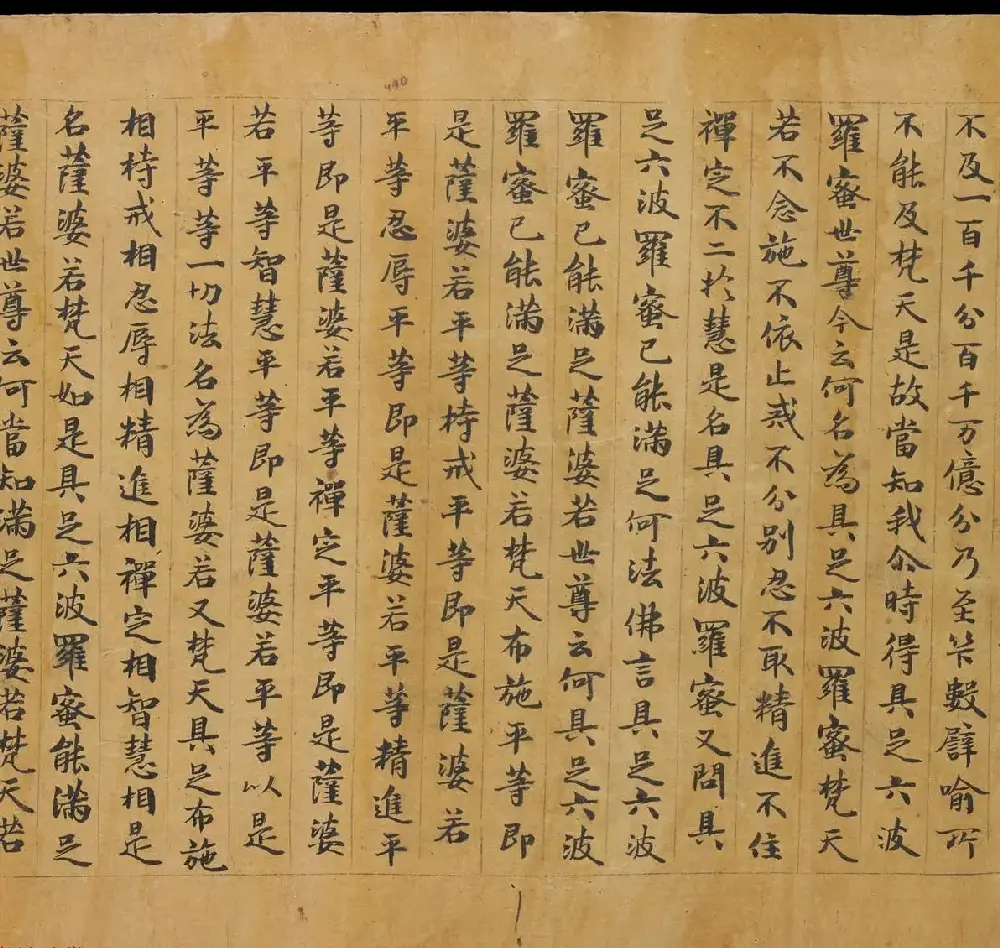 不及一百千分百千万億分乃至笇數譬喻所
不能及梵天是故當知我尒時得具足六波
羅蜜世尊今云何名為具足六波羅蜜梵天
若不念施不依止戒不分別忍不取精進不住
禪定不二於慧是名具足六波羅蜜又問具
足六波羅蜜已能滿足何法佛言具足六波
羅蜜已能滿足薩婆若世尊云何具足六波
羅蜜已能滿足薩婆若梵天布施平等即
是薩婆若平等持戒平等即是薩婆若
平等忍辱平等即是薩婆若平等精進平
等即是薩婆若平等禪定平等即是薩婆
若平等智慧平等即是薩婆若平等以是
平等等一切法名為薩婆若又梵天具足布施
相持戒相忍辱相精進相禪定相智慧相是
名薩婆若梵天如是具足六波羅蜜能滿足
薩婆若世尊云何當知滿足薩婆若梵天若